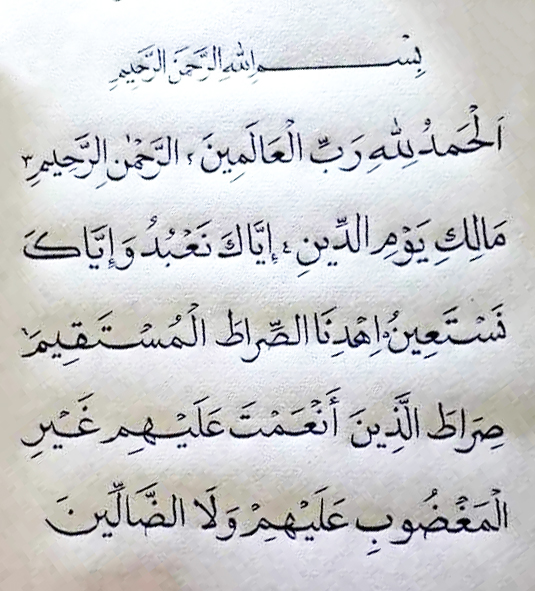 بِسْمِ اللهِ الرَّحْمَنِ الرَّحِيمِ
اَلْحَمْدُ لِلهِ رَبِّ الْعَالَمِينَ ٢ الرَّحْمٰنِ الرَّحِيمِ ٣
مَالِكِ يَوْمِ الدِّينِ ٤ إِيَّاكَ نَعْبُدُ وَإِيَّاكَ
نَسْتَعِينُ ٥ اِهْدِنَا الصِّرَاطَ الْمُسْتَقِيمَ ٦
صِرَاطَ الَّذِينَ أَنْعَمْتَ عَلَيْهِم غَيْرِ
الْمَغْضُوبِ عَلَيْهِمْ وَلَا الضَّالِّينَ